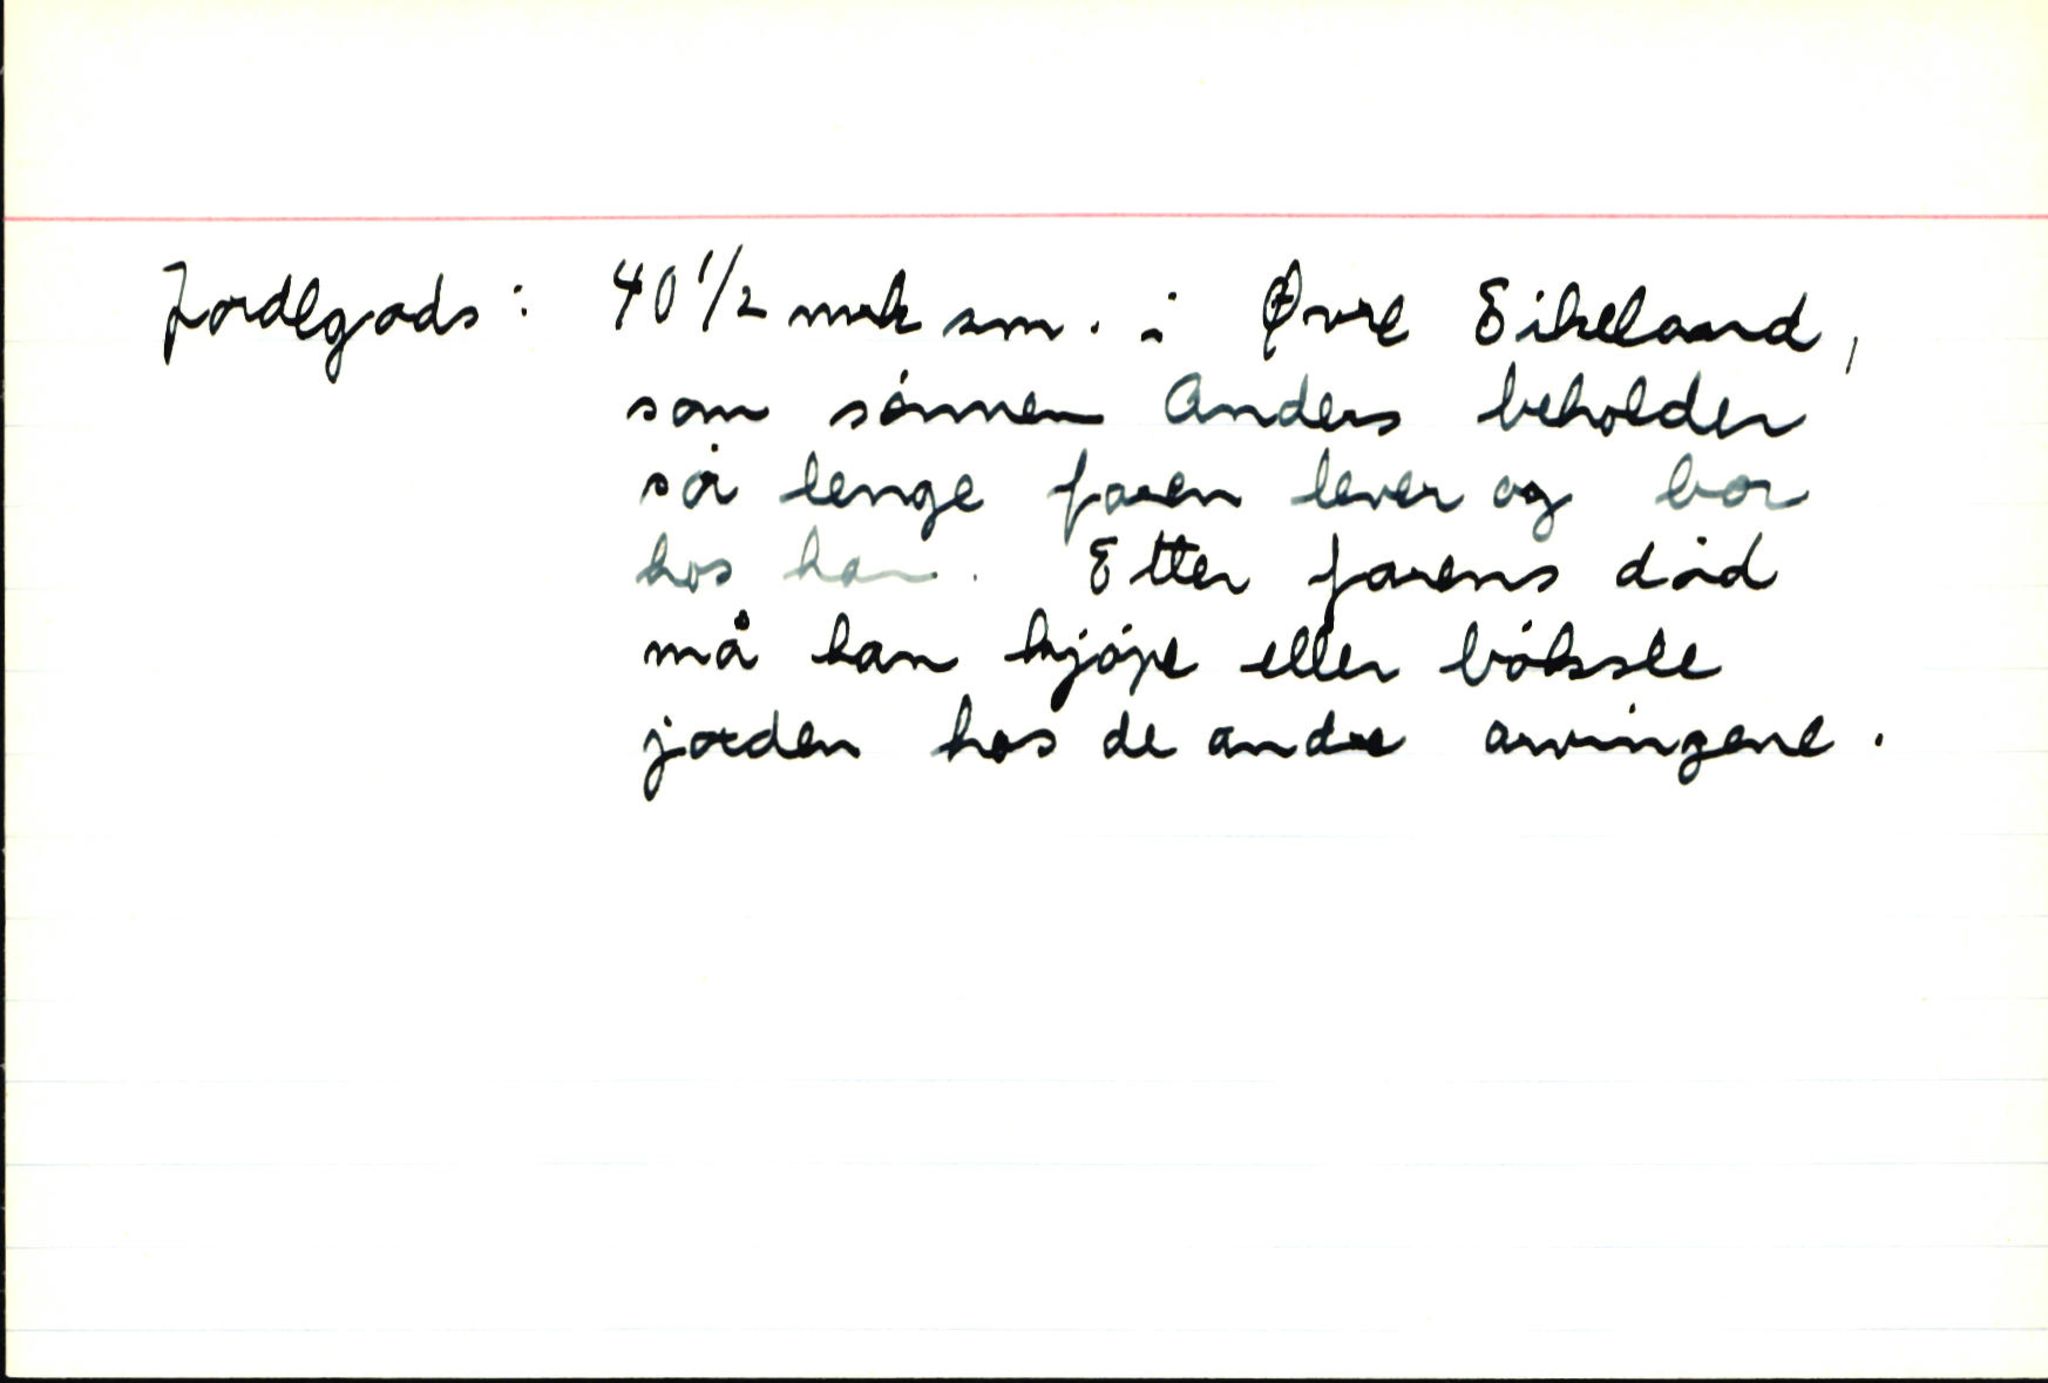 Jordegods: 40 1/2 mrk sm. i Øvre Eikeland,
som sønnen Anders beholder
så lenge faren lever og bor
hos han. Etter farens død
må han kjøpe eller bóksle
jorden hos de andre arvingene.